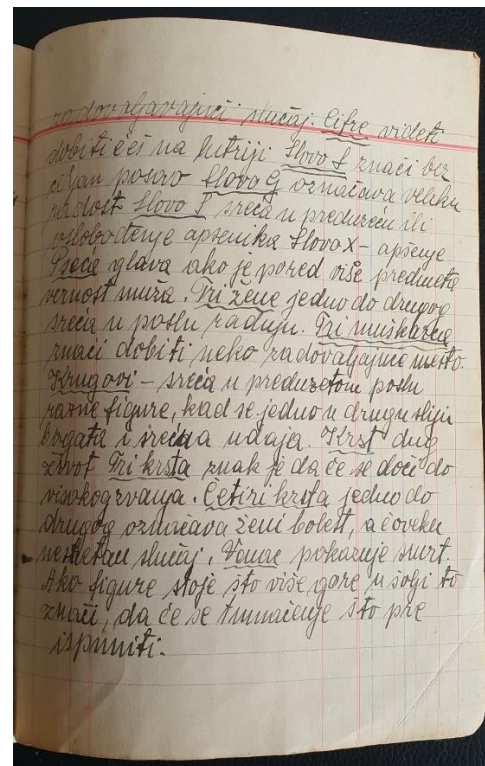 zadovoljavajući slučaj. Cifre videti
dobiti ćeš na lutriji Slovo S znači bez
ciljan posao Slovo G označava veliku
radost Slovo T sreća u preduzeću ili
oslobođenje apsenika Slovo X – apšenje
Pseća glava ako je pored više predmeta
vernost muža. Tri žene jedno do drugog
sreća u poslu raduju. Tri muškarca
znači dobiti neko zadovoljajuće mesto.
Krugovi – sreća u preduzetom poslu
razne figure, kad se jedno u drugu sliju
bogata i srećna udaja. Krst dug
život Tri krsta znak je da će se doći do
visokog zvanja. Četiri krsta jedno do
drugog označava ženi bolest, a čoveku
nesretan slučaj. Venac pokazuje smrt.
Ako figure stoje što više gore u šolji to
znači, da će se tumačenje što pre
ispuniti.